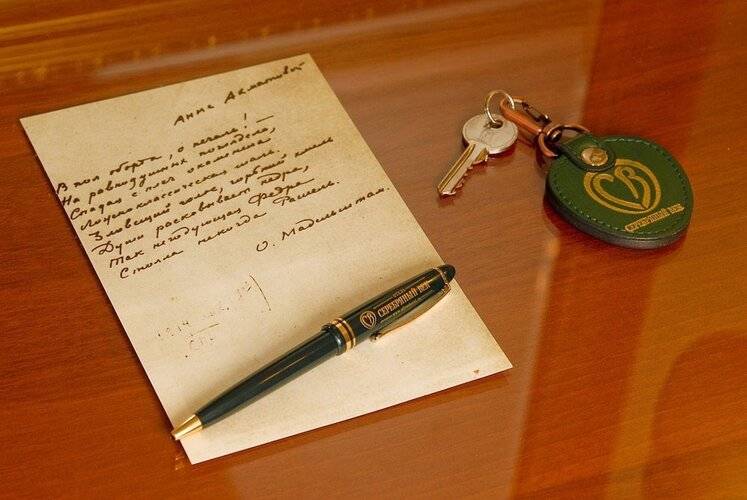 Анне Ахматовой
В пол оборота, о печаль! —
На равнодушных поглядела,
Спадая с плеч окаменела
Ложноклассическая шаль.
Зловещий голос, горький хмель
Души расковывает недра,
Так негодующая Федра
Стояла некогда Рашель.
О. Мандельштам.
1914
СПБ
СВ СЕРЕБРЯНЫЙ ВЕК
СВ
СЕРЕБРЯНЫЙ ВЕК